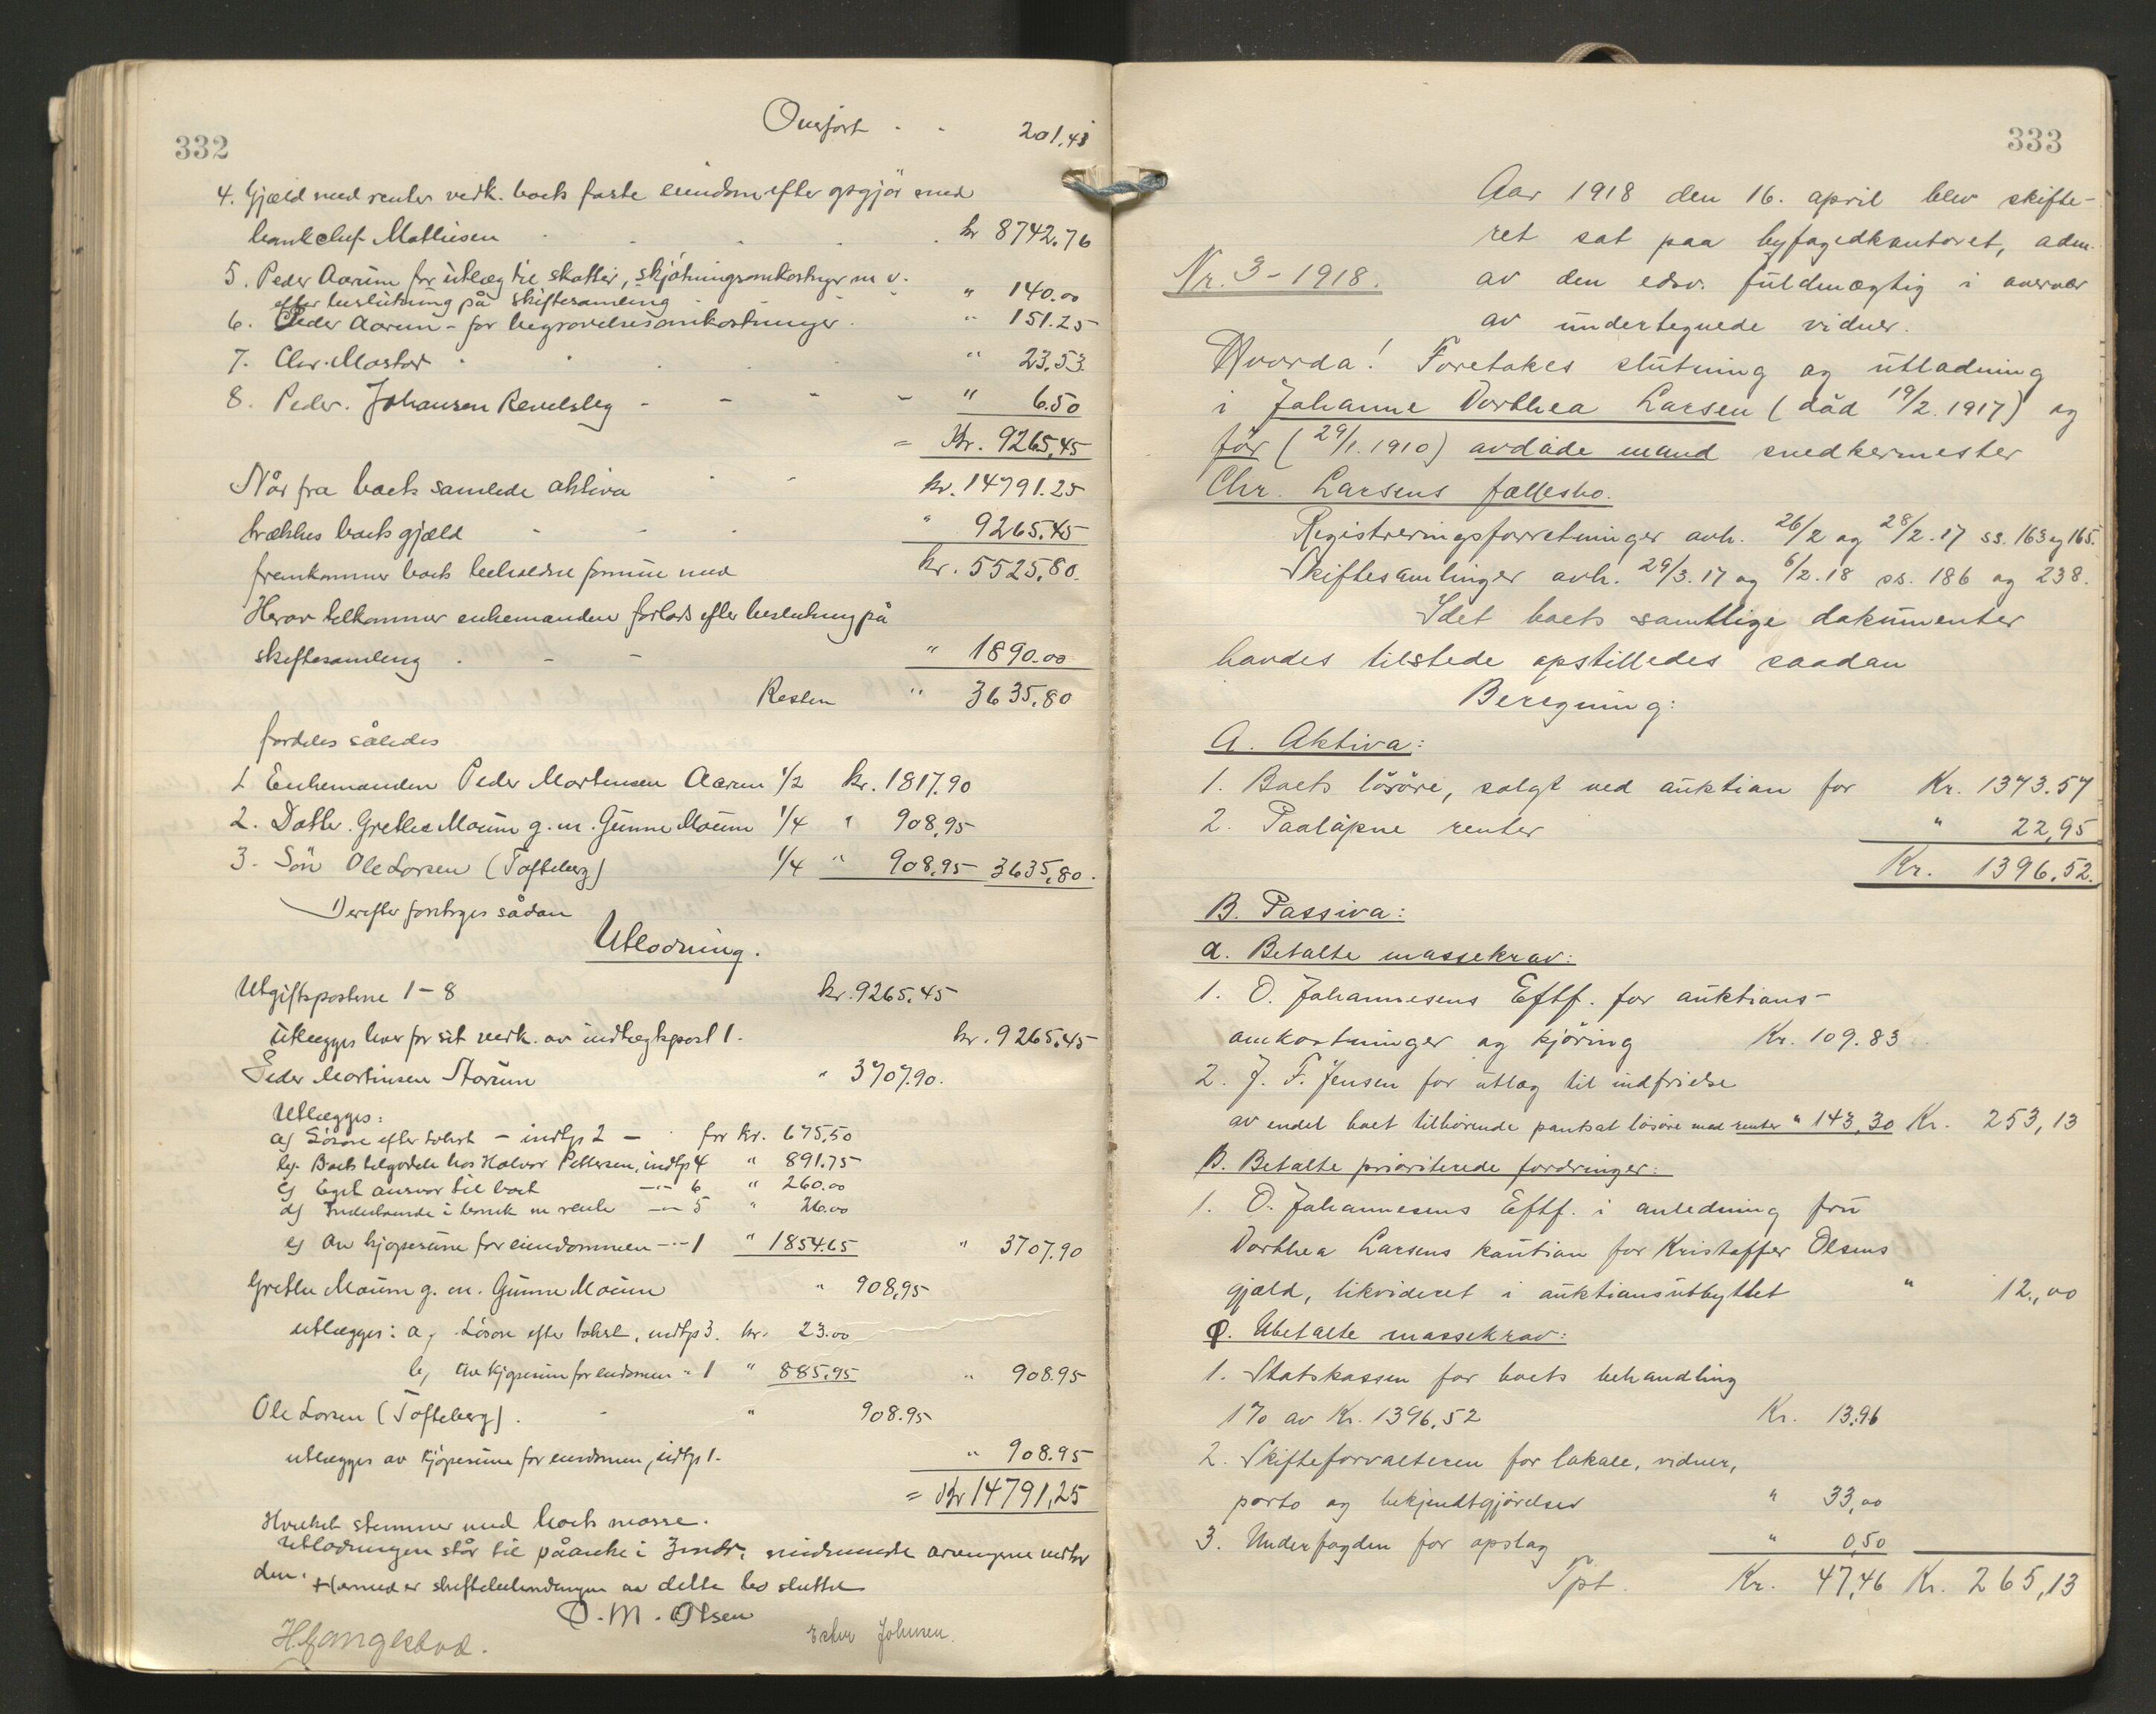 332
Overført - - 201.41
4. Gjæld med renter vedk. boets faste eiendom efter opgjör med
bankchef Mathiesen kr 8742.76
5. Peder Aarum for utlæg til skatter, skjötningsomkostngr m v.
efter beslutning på skiftesamling " 140.00
6. Peder Aarum - for begravelsesomkostninger " 151.25
7. Chr. Mastad " 23.53
8. Peder Johansen " 6.50
= Kr. 9265,45
Når fra boets samlede aktiva kr. 14791.25
trækkes boets gjæld " 9265.45
fremkommer boets beholdne formue med kr. 5525,80.
Herav tilkommer enkemanden forlods efter beslutning på
skiftesamling " 1890.00
Resten " 3635,80
fordeles således
1 Enkemanden Peder Mortensen Aarum 1/2 kr. 1817.90
2. Datter Grethe Moum g. m. Gunne Moum 1/4 " 908,95
3. Sön Ole Larsen (Tofteberg) 1/4 " 908,95 3635,80.
Derefter foretoges sådan
Utlodning.
Utgiftsposterne 1-8 kr. 9265.45
utlægges hver for sit vedk. av indtægtspost 1. kr. 9265,45
Peder Mortinsen " 3707.90.
Utlægges:
a) Lösöre efter takst - indtp 2 - for kr. 675,50
b) Boets tilgodeh. hos Halvor Pettersen, indtp 4 " 891.75
c) Eget ansvar til boet -"- 6 " 260.00
d) Indestaaende i bank m rente -"- 5 " 26.00
e) Av kjøpesum for eiendommen -"- 1 " 1854.65 " 3707.90
Grethe Moum g. m. Gunne Moum " 908,95
utlægges: a, Lösöre efter takst, indtp 3. kr. 23.00
b, Av kjøpesum for eiendommen " 1 " 885,95 " 908.95
Ole Larsen (Tofteberg). " 908.95
utlægges av kjöpesum for eiendommen, indtp 1. " 908.95
= Kr 14791,25
Hvilket stemmer med boets masse.
Utlodningen står til påanke i 3 mdr.
den. Hermed er skiftebehandlingen av dette bo sluttet
O. M. Olsen
H. Langestad. Johnsen.
333
Aar 1918 den 16. april blev skifte-
ret sat paa byfogedkontoret, adm.
Nr. 3 - 1918. av den edsv. fuldmægtig i overvær
av undertegnede vidner.
Hvorda! Foretokes slutning og utlodning
i Johanne Dorthea Larsen (död 19/2. 1917) og
för (29/1. 1910) avdöde mand snedkermester
Chr. Larsens fællesbo.
Registreringsforretninger avh. 26/2 og 28/2. 17 ss. 163 og 165.
Skiftesamlinger avh. 29/3. 17 og 6/2. 18 ss. 186 og 238.
Idet boets samtlige dokumenter
havdes tilstede opstilledes saadan
Beregning:
A. Aktiva:
1. Boets lösöre, solgt ved auktion for Kr. 1373.57
2. Paalöpne renter " 22,95
Kr. 1396,52.
B. Passiva:
a. Betalte massekrav:
1. O. Johannesens Eftf. for auktions-
omkostninger og kjöring Kr. 109.83
2. J. F. Jensen for utlæg til indfrielse
av endel boet tilhörende pantsat lösöre med renter " 143,30 Kr. 253,13
B. Betalte prioriterede fordringer:
1. O. Johannesens Eftf. i anledning fru
Dorthea Larsens kaution for Kristoffer Olsens
gjæld, likvideret i auktionsutbyttet " 12,00
C. Ubetalte massekrav:
1. Statskassen for boets behandling
1% av Kr. 1396,52 Kr. 13.96
2. Skifteforvalteren for lokale, vidner,
porto og bekjendtgjörelser " 33,00
3. Underfogden for opslag " 0,50
Tpt. Kr. 47,46 Kr. 265,13